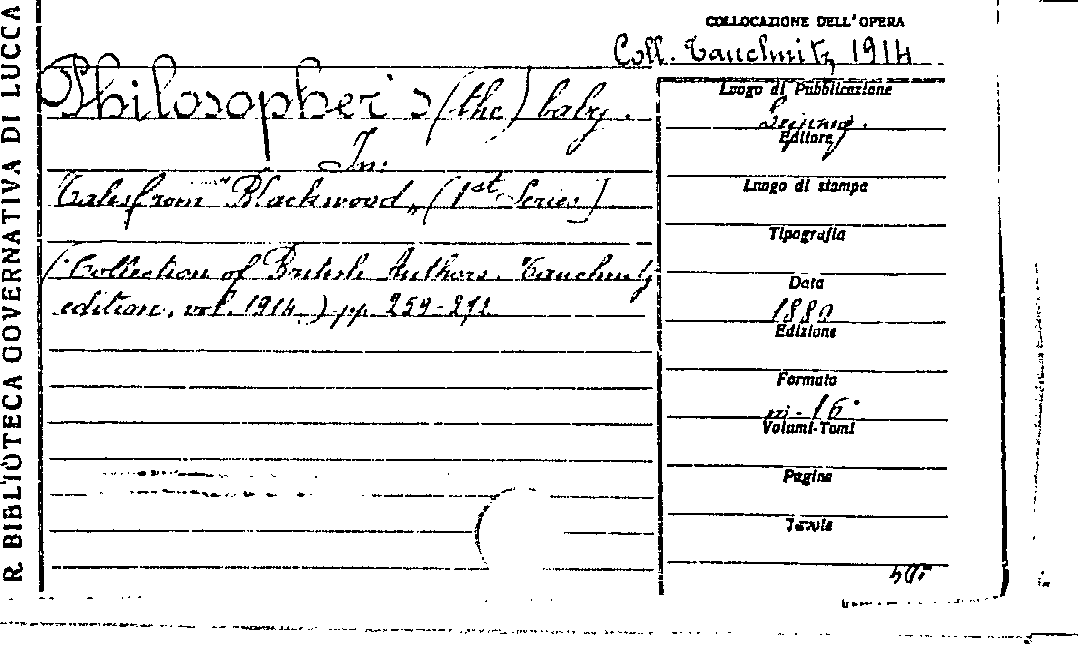 R BIBLIOTECA GOVERNATIVA DI LUCCA
COLLOCAZIONE DELL'OPERA
Coll. Tauchnitz 1914
Philosopher's (the) baby.
In:
Tales from "Blackwood" (1st Series)
(Collection of British Authors. Tauchnitz
edition, vol. 1914.) pp. 259-272
Luogo di Pubblicazione
Editore
Luogo di stampa
Tipografia
Data
1880
Edizione
Formato
in-16°
Volumi-Tomi
Pagine
Tavole